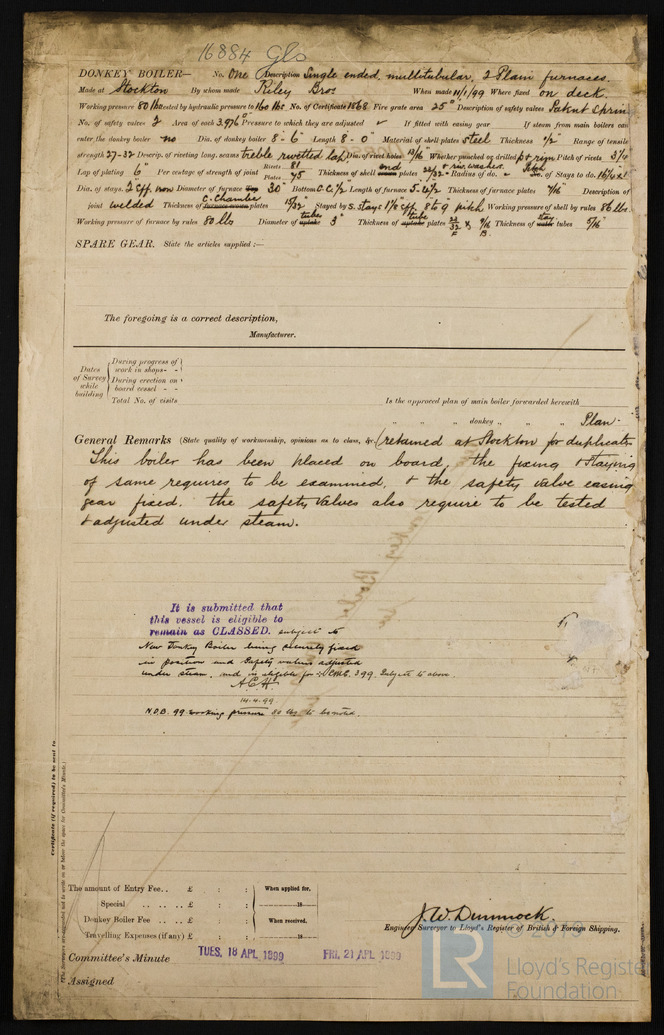 16884 Gls
DONKEY BOILER— No. One Description Single ended, multitubular, 2 Plain furnaces.
Made at Stockton By whom made Riley Bros When made 11/1/99 Where fixed on deck.
Working pressure 80 lbs tested by hydraulic pressure to 160 lbs No. of Certificate 1868 Fire grate area 25 Description of safety valves Patent Spring
No. of safety valves 2 Area of each 3.976 Pressure to which they are adjusted If fitted with easing gear If steam from main boilers can
enter the donkey boiler no Dia. of donkey boiler 8-6 Length 8-0" Material of shell plates steel Thickness 1/2" Range of tensile
strength 27-32 Descrip. of riveting long. seams treble rivetted lap Dia. of rivet holes 13/16" Whether punched or drilled Pitch of rivets
Lap of plating 6" Per centage of strength of joint Rivets 81 Plates 75 Thickness of shell ends plates Radius of do. Pitch of Stays to do.
Dia. of stays. Diameter of furnace 30" Bottom Length of furnace Thickness of furnace plates 7/16" Description of
joint welded Thickness of C. Chamber plates 15/32" Stayed by S. stays 1 1/8" eff. 8 to 9 pitch Working pressure of shell by rules 86 lbs.
Working pressure of furnace by rules 80 lbs Diameter of tube 3" Thickness of tube plates 23/32 F & 9/16 B. Thickness of stay tubes 5/16"
SPARE GEAR. State the articles supplied:—
The foregoing is a correct description,
Manufacturer.
Dates of Survey while building
During progress of work in shops - -
During erection on board vessel - -
Total No. of visits
Is the approved plan of main boiler forwarded herewith
" " " donkey " " " Plan -
General Remarks (State quality of workmanship, opinions as to class, &c. (retained at Stockton for duplicate
This boiler has been placed on board, the fixing & staying
of same requires to be examined, & the safety valve easing
gear fixed. the safety valves also require to be tested
& adjusted under steam.
It is submitted that
this vessel is eligible to
remain as CLASSED. subject to
New Donkey Boiler being securely fixed
in position and Safety valves adjusted
under steam, and is eligible for LMC 3.99. Subject to above.
A.C.H.
14.4.99
N.D.B. 99 working pressure 80 lbs to be noted.
Certificate (if required) to be sent to
The amount of Entry Fee.. £ : : When applied for,
Special .. .. .. £ : : 18
Donkey Boiler Fee .. .. £ : : When received,
Travelling Expenses (if any) £ : : 18
J. W. Dimmock.
Engineer Surveyor to Lloyd's Register of British & Foreign Shipping.
Committee's Minute TUES. 18 APL 1899 FRI. 21 APL 1899
Assigned
LR
Lloyd's Register
Foundation